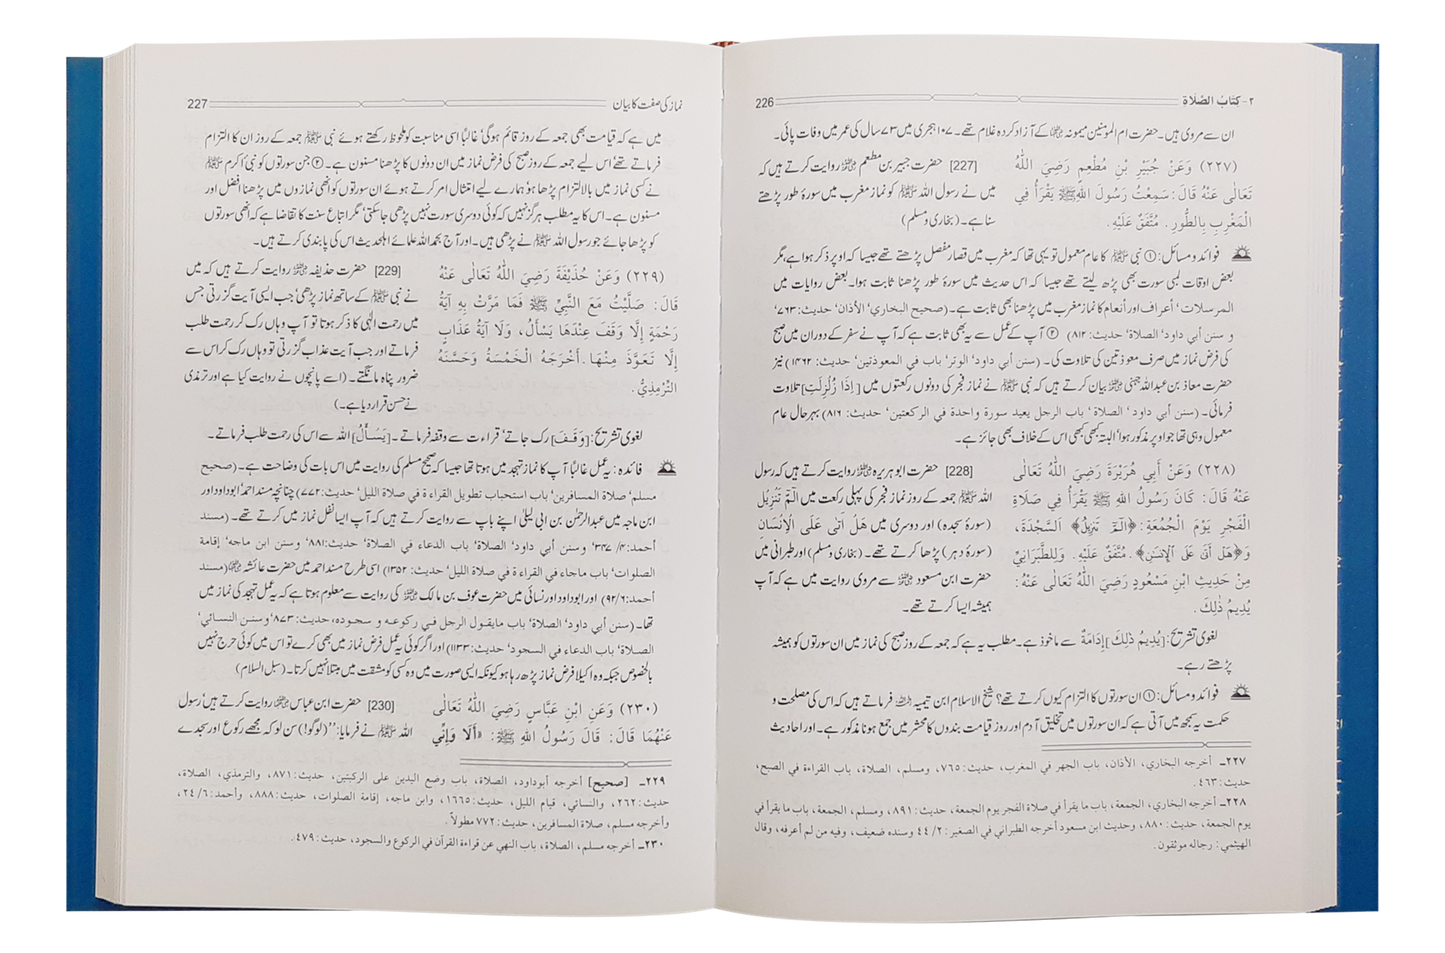 ۲- كتاب الصلاة 226
ان سے مروی ہیں۔ حضرت ام المومنین میمونہ کے آزاد کردہ غلام تھے۔ ۱۰۷ ہجری میں ۷۳ سال کی عمر میں وفات پائی۔
(۲۲۷) وَعَنْ جُبَيْرِ بْنِ مُطْعِمٍ رَضِيَ اللّٰهُ
تَعَالٰى عَنْهُ قَالَ: سَمِعْتُ رَسُولَ اللهِ ﷺ يَقْرَأُ فِي
الْمَغْرِبِ بِالطُّورِ . مُتَّفَقٌ عَلَيْهِ.
[227] حضرت جبیر بن مطعم ؓ روایت کرتے ہیں کہ
میں نے رسول اللہ ﷺ کو نماز مغرب میں سورۂ طور پڑھتے
سنا ہے۔ (بخاری و مسلم)
فوائد و مسائل: ① نبی ﷺ کا عام معمول تو یہی تھا کہ مغرب میں قصار مفصل پڑھتے تھے جیسا کہ اوپر ذکر ہوا ہے، مگر
بعض اوقات لمبی سورت بھی پڑھ لیتے تھے جیسا کہ اس حدیث میں سورۂ طور پڑھنا ثابت ہوا۔ بعض روایات میں
المرسلات‘ أعراف اور أنعام کا نماز مغرب میں پڑھنا بھی ثابت ہے۔ (صحيح البخاري‘ الأذان‘ حديث: ۷۶۳‘
و سنن أبي داود‘ الصلاة‘ حديث: ۸۱۲) ② آپ کے عمل سے یہ بھی ثابت ہے کہ آپ نے سفر کے دوران میں صبح
کی فرض نماز میں صرف معوذتین کی تلاوت کی۔ (سنن أبي داود‘ الوتر‘ باب في المعوذتين‘ حديث: ۱۴۶۲) نیز
حضرت معاذ بن عبداللہ جہنی ؓ بیان کرتے ہیں کہ نبی ﷺ نے نماز فجر کی دونوں رکعتوں میں [إِذَا زُلْزِلَتِ] تلاوت
فرمائی۔ (سنن أبي داود‘ الصلاة‘ باب الرجل يعيد سورة واحدة في الركعتين‘ حديث: ۸۱۶) بہرحال عام
معمول وہی تھا جو اوپر مذکور ہوا‘ البتہ کبھی کبھی اس کے خلاف بھی جائز ہے۔
(۲۲۸) وَعَنْ أَبِي هُرَيْرَةَ رَضِيَ اللّٰهُ تَعَالٰى
عَنْهُ قَالَ: كَانَ رَسُولُ اللهِ ﷺ يَقْرَأُ فِي صَلَاةِ
الْفَجْرِ يَوْمَ الْجُمُعَةِ: ﴿الٓمٓ تَنزِيلُ﴾ اَلسَّجْدَةَ،
وَ﴿هَلْ أَتَىٰ عَلَى ٱلْإِنسَٰنِ﴾. مُتَّفَقٌ عَلَيْهِ. وَلِلطَّبَرَانِيِّ
مِنْ حَدِيثِ ابْنِ مَسْعُودٍ رَضِيَ اللّٰهُ تَعَالٰى عَنْهُ:
يُدِيمُ ذٰلِكَ.
[228] حضرت ابو ہریرہ ؓ روایت کرتے ہیں کہ رسول
اللہ ﷺ جمعہ کے روز نماز فجر کی پہلی رکعت میں الٓمّٓ تَنْزِيْلُ
(سورۂ سجدہ) اور دوسری میں هَلْ اَتٰى عَلَى الْاِنْسَانِ
(سورۂ دہر) پڑھا کرتے تھے۔ (بخاری و مسلم) اور طبرانی میں
حضرت ابن مسعود ؓ سے مروی روایت میں ہے کہ آپ
ہمیشہ ایسا کرتے تھے۔
لغوی تشریح: [يُدِيمُ ذٰلِكَ] إِدَامَةٌ سے ماخوذ ہے۔ مطلب یہ ہے کہ جمعہ کے روز صبح کی نماز میں ان سورتوں کو ہمیشہ
پڑھتے رہے۔
فوائد و مسائل: ① ان سورتوں کا التزام کیوں کرتے تھے؟ شیخ الاسلام ابن تیمیہ فرماتے ہیں کہ اس کی مصلحت و
حکمت یہ سمجھ میں آتی ہے کہ ان سورتوں میں تخلیق آدم اور روز قیامت بندوں کا محشر میں جمع ہونا مذکور ہے۔ اور احادیث
۲۲۷ـ أخرجه البخاري، الأذان، باب الجهر في المغرب، حديث: ۷۶۵، ومسلم، الصلاة، باب القراءة في الصبح،
حديث: ۴۶۳.
۲۲۸ـ أخرجه البخاري، الجمعة، باب ما يقرأ في صلاة الفجر يوم الجمعة، حديث: ۸۹۱، ومسلم، الجمعة، باب ما يقرأ في
يوم الجمعة، حديث: ۸۸۰، وحديث ابن مسعود أخرجه الطبراني في الصغير: ۲/ ۴۴ وسنده ضعيف، وفيه من لم أعرفه، وقال
الهيثمي: رجاله موثقون.
نماز کی صفت کا بیان 227
میں ہے کہ قیامت بھی جمعہ کے روز قائم ہوگی‘ غالباً اسی مناسبت کو ملحوظ رکھتے ہوئے نبی ﷺ جمعہ کے روز ان کا التزام
فرماتے تھے‘ اس لیے جمعہ کے روز صبح کی فرض نماز میں ان دونوں کا پڑھنا مسنون ہے۔ ② جن سورتوں کو نبی ٔ اکرم ﷺ
نے کسی نماز میں بالالتزام پڑھا ہو‘ ہمارے لیے امتثال امر کرتے ہوئے ان سورتوں کو انھی نمازوں میں پڑھنا افضل اور
مسنون ہے۔ اس کا یہ مطلب ہرگز نہیں کہ کوئی دوسری سورت نہیں پڑھی جاسکتی‘ مگر اتباع سنت کا تقاضا ہے کہ انھی سورتوں
کو پڑھا جائے جو رسول اللہ ﷺ نے پڑھی ہیں۔ اور آج بحمداللہ علمائے اہلحدیث اس کی پابندی کرتے ہیں۔
(۲۲۹) وَعَنْ حُذَيْفَةَ رَضِيَ اللّٰهُ تَعَالٰى عَنْهُ
قَالَ: صَلَّيْتُ مَعَ النَّبِيِّ ﷺ فَمَا مَرَّتْ بِهِ آيَةُ
رَحْمَةٍ إِلَّا وَقَفَ عِنْدَهَا يَسْأَلُ، وَلَا آيَةُ عَذَابٍ
إِلَّا تَعَوَّذَ مِنْهَا. أَخْرَجَهُ الْخَمْسَةُ وَحَسَّنَهُ
التِّرْمِذِيُّ.
[229] حضرت حذیفہ ؓ روایت کرتے ہیں کہ میں
نے نبی ﷺ کے ساتھ نماز پڑھی‘ جب ایسی آیت گزرتی جس
میں رحمت الٰہی کا ذکر ہوتا تو آپ وہاں رک کر رحمت طلب
فرماتے اور جب آیت عذاب گزرتی تو وہاں رک کر اس سے
ضرور پناہ مانگتے۔ (اسے پانچوں نے روایت کیا ہے اور ترمذی
نے حسن قرار دیا ہے۔)
لغوی تشریح: [وَقَفَ] رک جاتے‘ قراءت سے وقفہ فرماتے۔ [يَسْأَلُ] اللہ سے اس کی رحمت طلب فرماتے۔
فائدہ: یہ عمل غالباً آپ کا نماز تہجد میں ہوتا تھا جیسا کہ صحیح مسلم کی روایت میں اس بات کی وضاحت ہے۔ (صحيح
مسلم‘ صلاة المسافرين‘ باب استحباب تطويل القراءة في صلاة الليل‘ حديث: ۷۷۲) چنانچہ مسند احمد‘ ابوداود اور
ابن ماجہ میں عبدالرحمٰن بن ابی لیلیٰ اپنے باپ سے روایت کرتے ہیں کہ آپ ایسا نفل نماز میں کرتے تھے۔ (مسند
أحمد: ۴/ ۳۴۷‘ وسنن أبي داود‘ الصلاة‘ باب الدعاء في الصلاة‘ حديث: ۸۸۱‘ وسنن ابن ماجه‘ إقامة
الصلوات‘ باب ماجاء في القراءة في صلاة الليل‘ حديث: ۱۳۵۲) اسی طرح مسند احمد میں حضرت عائشہ ؓ (مسند
أحمد: ۶/ ۹۲) اور ابوداود اور نسائی میں حضرت عوف بن مالک ؓ کی روایت سے معلوم ہوتا ہے کہ یہ عمل تہجد کی نماز میں
تھا۔ (سنن أبي داود‘ الصلاة‘ باب مايقول الرجل في ركوعه و سجوده‘ حديث: ۸۷۳‘ وسنن النسائي‘
الصلاة‘ باب الدعاء في السجود‘ حديث: ۱۱۳۳) اور اگر کوئی یہ عمل فرض نماز میں بھی کرے تو اس میں کوئی حرج نہیں
بالخصوص جبکہ وہ اکیلا فرض نماز پڑھ رہا ہو کیونکہ ایسی صورت میں وہ کسی کو مشقت میں مبتلا نہیں کرتا۔ (سبل السلام)
(۲۳۰) وَعَنِ ابْنِ عَبَّاسٍ رَضِيَ اللّٰهُ تَعَالٰى
عَنْهُمَا قَالَ: قَالَ رَسُولُ اللهِ ﷺ: «أَلَا وَإِنِّي
[230] حضرت ابن عباس ؓ روایت کرتے ہیں‘ رسول
اللہ ﷺ نے فرمایا: ’’(لوگو!) سن لو کہ مجھے رکوع اور سجدے
۲۲۹ـ [صحيح] أخرجه أبوداود، الصلاة، باب وضع اليدين على الركبتين، حديث: ۸۷۱، والترمذي، الصلاة،
حديث: ۲۶۲، والنسائي، قيام الليل، حديث: ۱۶۶۵، وابن ماجه، إقامة الصلوات، حديث: ۸۸۸، وأحمد: ۶/ ۲۴،
وأخرجه مسلم، صلاة المسافرين، حديث: ۷۷۲ مطولاً.
۲۳۰ـ أخرجه مسلم، الصلاة، باب النهي عن قراءة القرآن في الركوع والسجود، حديث: ۴۷۹.